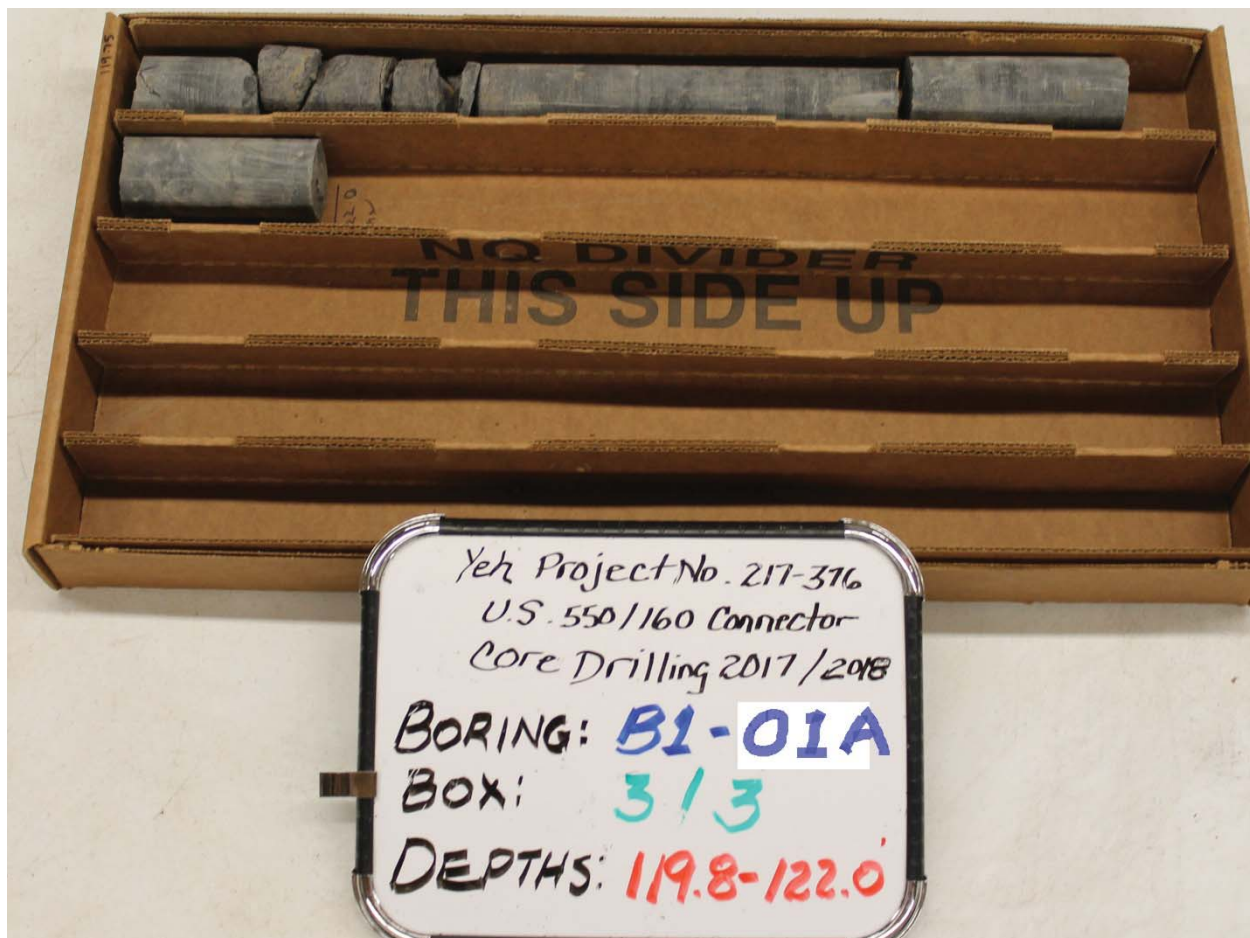 119.75
NQ DIVIDER
THIS SIDE UP
Yeh Project No. 217-376
U.S. 550/160 Connector
Core Drilling 2017/2018
BORING: B1-01A
BOX: 3/3
DEPTHS: 119.8-122.0'